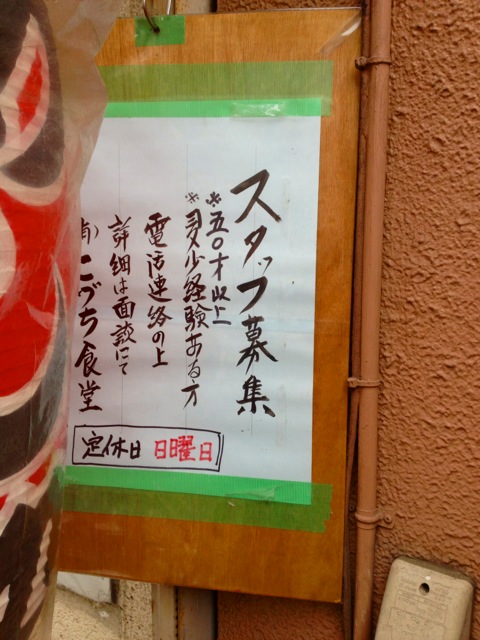 スタッフ募集
※五〇才以上
※多少経験ある方
電話連絡の上
詳細は面談にて
有)こづち食堂
定休日 日曜日